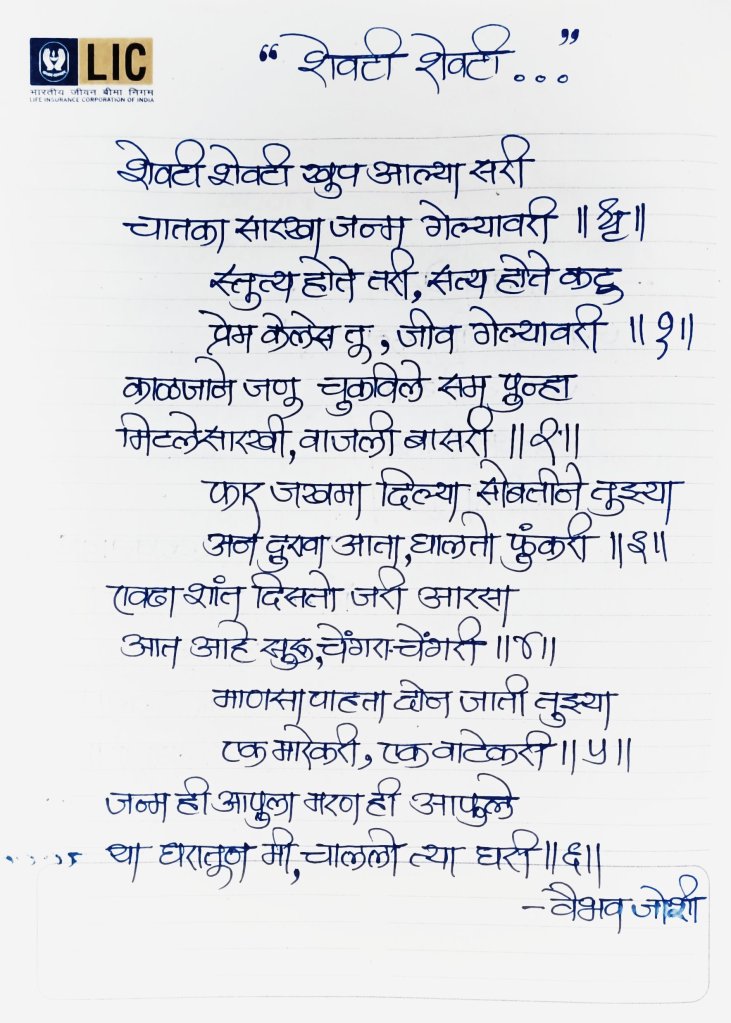 LIC
भारतीय जीवन बीमा निगम
LIFE INSURANCE CORPORATION OF INDIA
“ शेवटी शेवटी ...”
शेवटी शेवटी खुप आल्या सरी
चातका सारखा जन्म गेल्यावरी ॥ धृ ॥
स्तुत्य होते तरी, सत्य होते कटु
प्रेम केलेस तू, जीव गेल्यावरी ॥ १ ॥
काळजाने जणू चुकविले सम पुन्हा
मिटलेसारखी, वाजली बासरी ॥ २ ॥
फार जखमा दिल्या सोबतीने तुझ्या
अन दुरावा आता, घालतो फुंकरी ॥ ३ ॥
एवढा शांत दिसतो जरी आरसा
आत आहे सुरू, चेंगरा-चेंगरी ॥ ४ ॥
माणसा पाहता दोन जाती तुझ्या
एक मारेकरी, एक वाटेकरी ॥ ५ ॥
जन्म ही आपुला मरण ही आपुले
या घरातून मी, चाललो त्या घरी ॥ ६ ॥
- वैभव जोशी